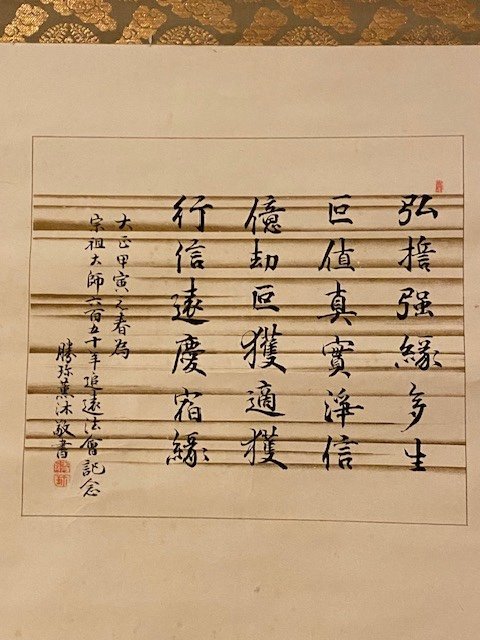 弘誓强緣多生
叵値真實淨信
億劫叵獲適獲
行信遠慶宿緣
大正甲寅之春為
宗祖大師六百五十年追遠法會記念
勝珎薫沐敬書